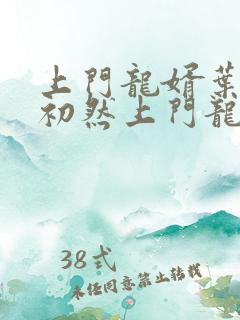 上門龍婿葉
初然上門龍
38式
未經同意禁止轉載